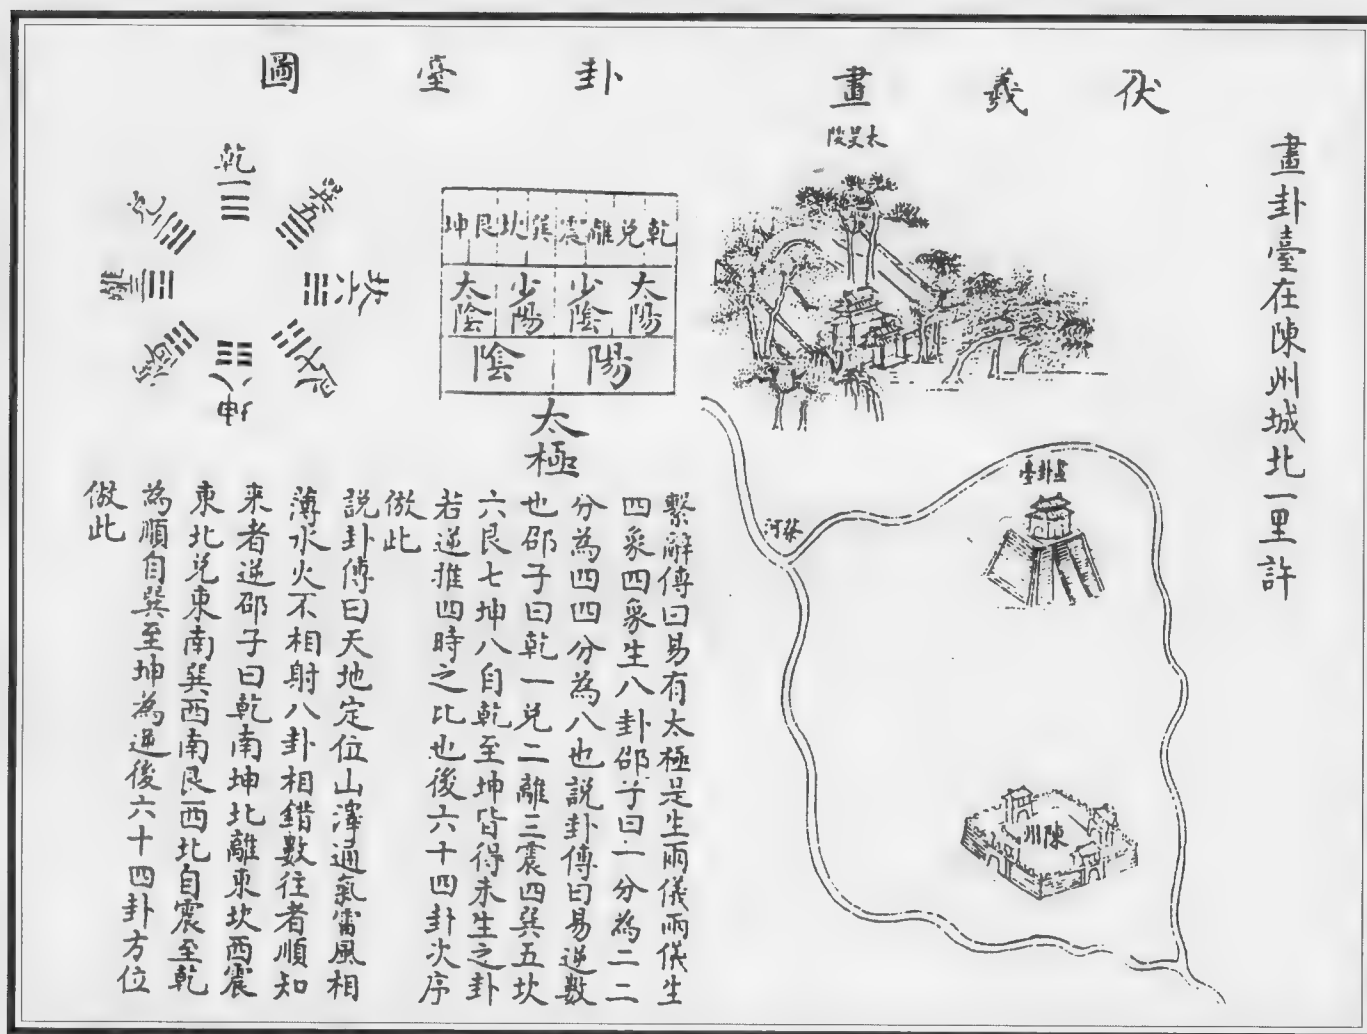 伏羲畫卦臺圖
畫卦臺在陳州城北一里許
太昊陵
畫卦臺
蔡河
陳州
乾兌離震巽坎艮坤
太陽少陰少陽太陰
陽陰
太極
乾一
兌二
離三
震四
巽五
坎六
艮七
坤八
繫辭傳曰易有太極是生兩儀兩儀生
四象四象生八卦邵子曰一分為二二
分為四四分為八也說卦傳曰易逆數
也邵子曰乾一兌二離三震四巽五坎
六艮七坤八自乾至坤皆得未生之卦
若逆推四時之比也後六十四卦次序
倣此
說卦傳曰天地定位山澤通氣雷風相
薄水火不相射八卦相錯數往者順知
来者逆邵子曰乾南坤北離東坎西震
東北兌東南巽西南艮西北自震至乾
為順自巽至坤為逆後六十四卦方位
倣此